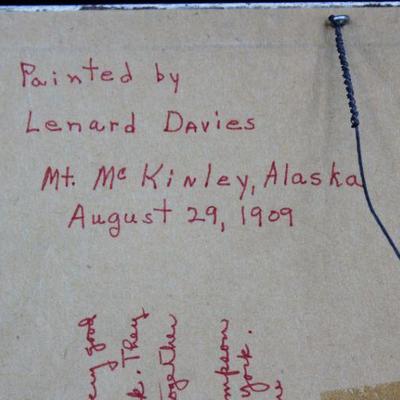 Painted by
Lenard Davies
Mt. Mc Kinley, Alaska
August 29, 1909
good
They
together